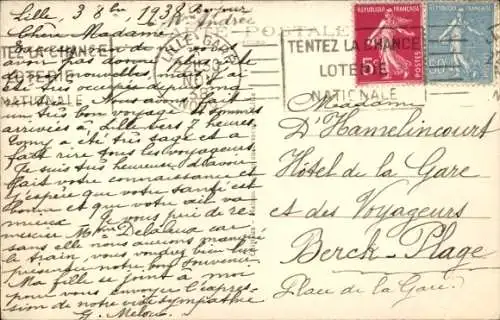 Lille, 3 8bre 1938 Bonjour
Mme Andrée
Chère Madame,
Excusez moi de ne vous
avoir pas donné plus tôt
de nos nouvelles, mais j'ai
été très occupée depuis ma
Nous avons fait
un très bon voyage et sommes
arrivées à Lille vers 7 heures
Tomy a été très sage et a
fait rire tous les voyageurs.
Je suis très heureuse d'avoir
fait votre connaissance et
j'espère que votre santé est
bonne et que votre va
mieux Je vous prie de re-
mercier Mme Delaleau car
sans elle nous aurions manqué
le train, vous voudrez bien lui
présenter notre bon souvenir
Ma fille se joint à moi
pour vous envoyer l'expres-
sion de notre vive sympathie
G. Melon
CARTE POSTALE
LILLE
NOV
38
TENTEZ LA CHANCE
LOTERIE
NATIONALE
TENTEZ LA CHANCE
LOTERIE
NATIONALE
REPUBLIQUE FRANÇAISE
5c
REPUBLIQUE FRANÇAISE
50c
Madame
D'Hamelincourt
Hôtel de la Gare
et des Voyageurs
Berck-Plage
Place de la Gare.